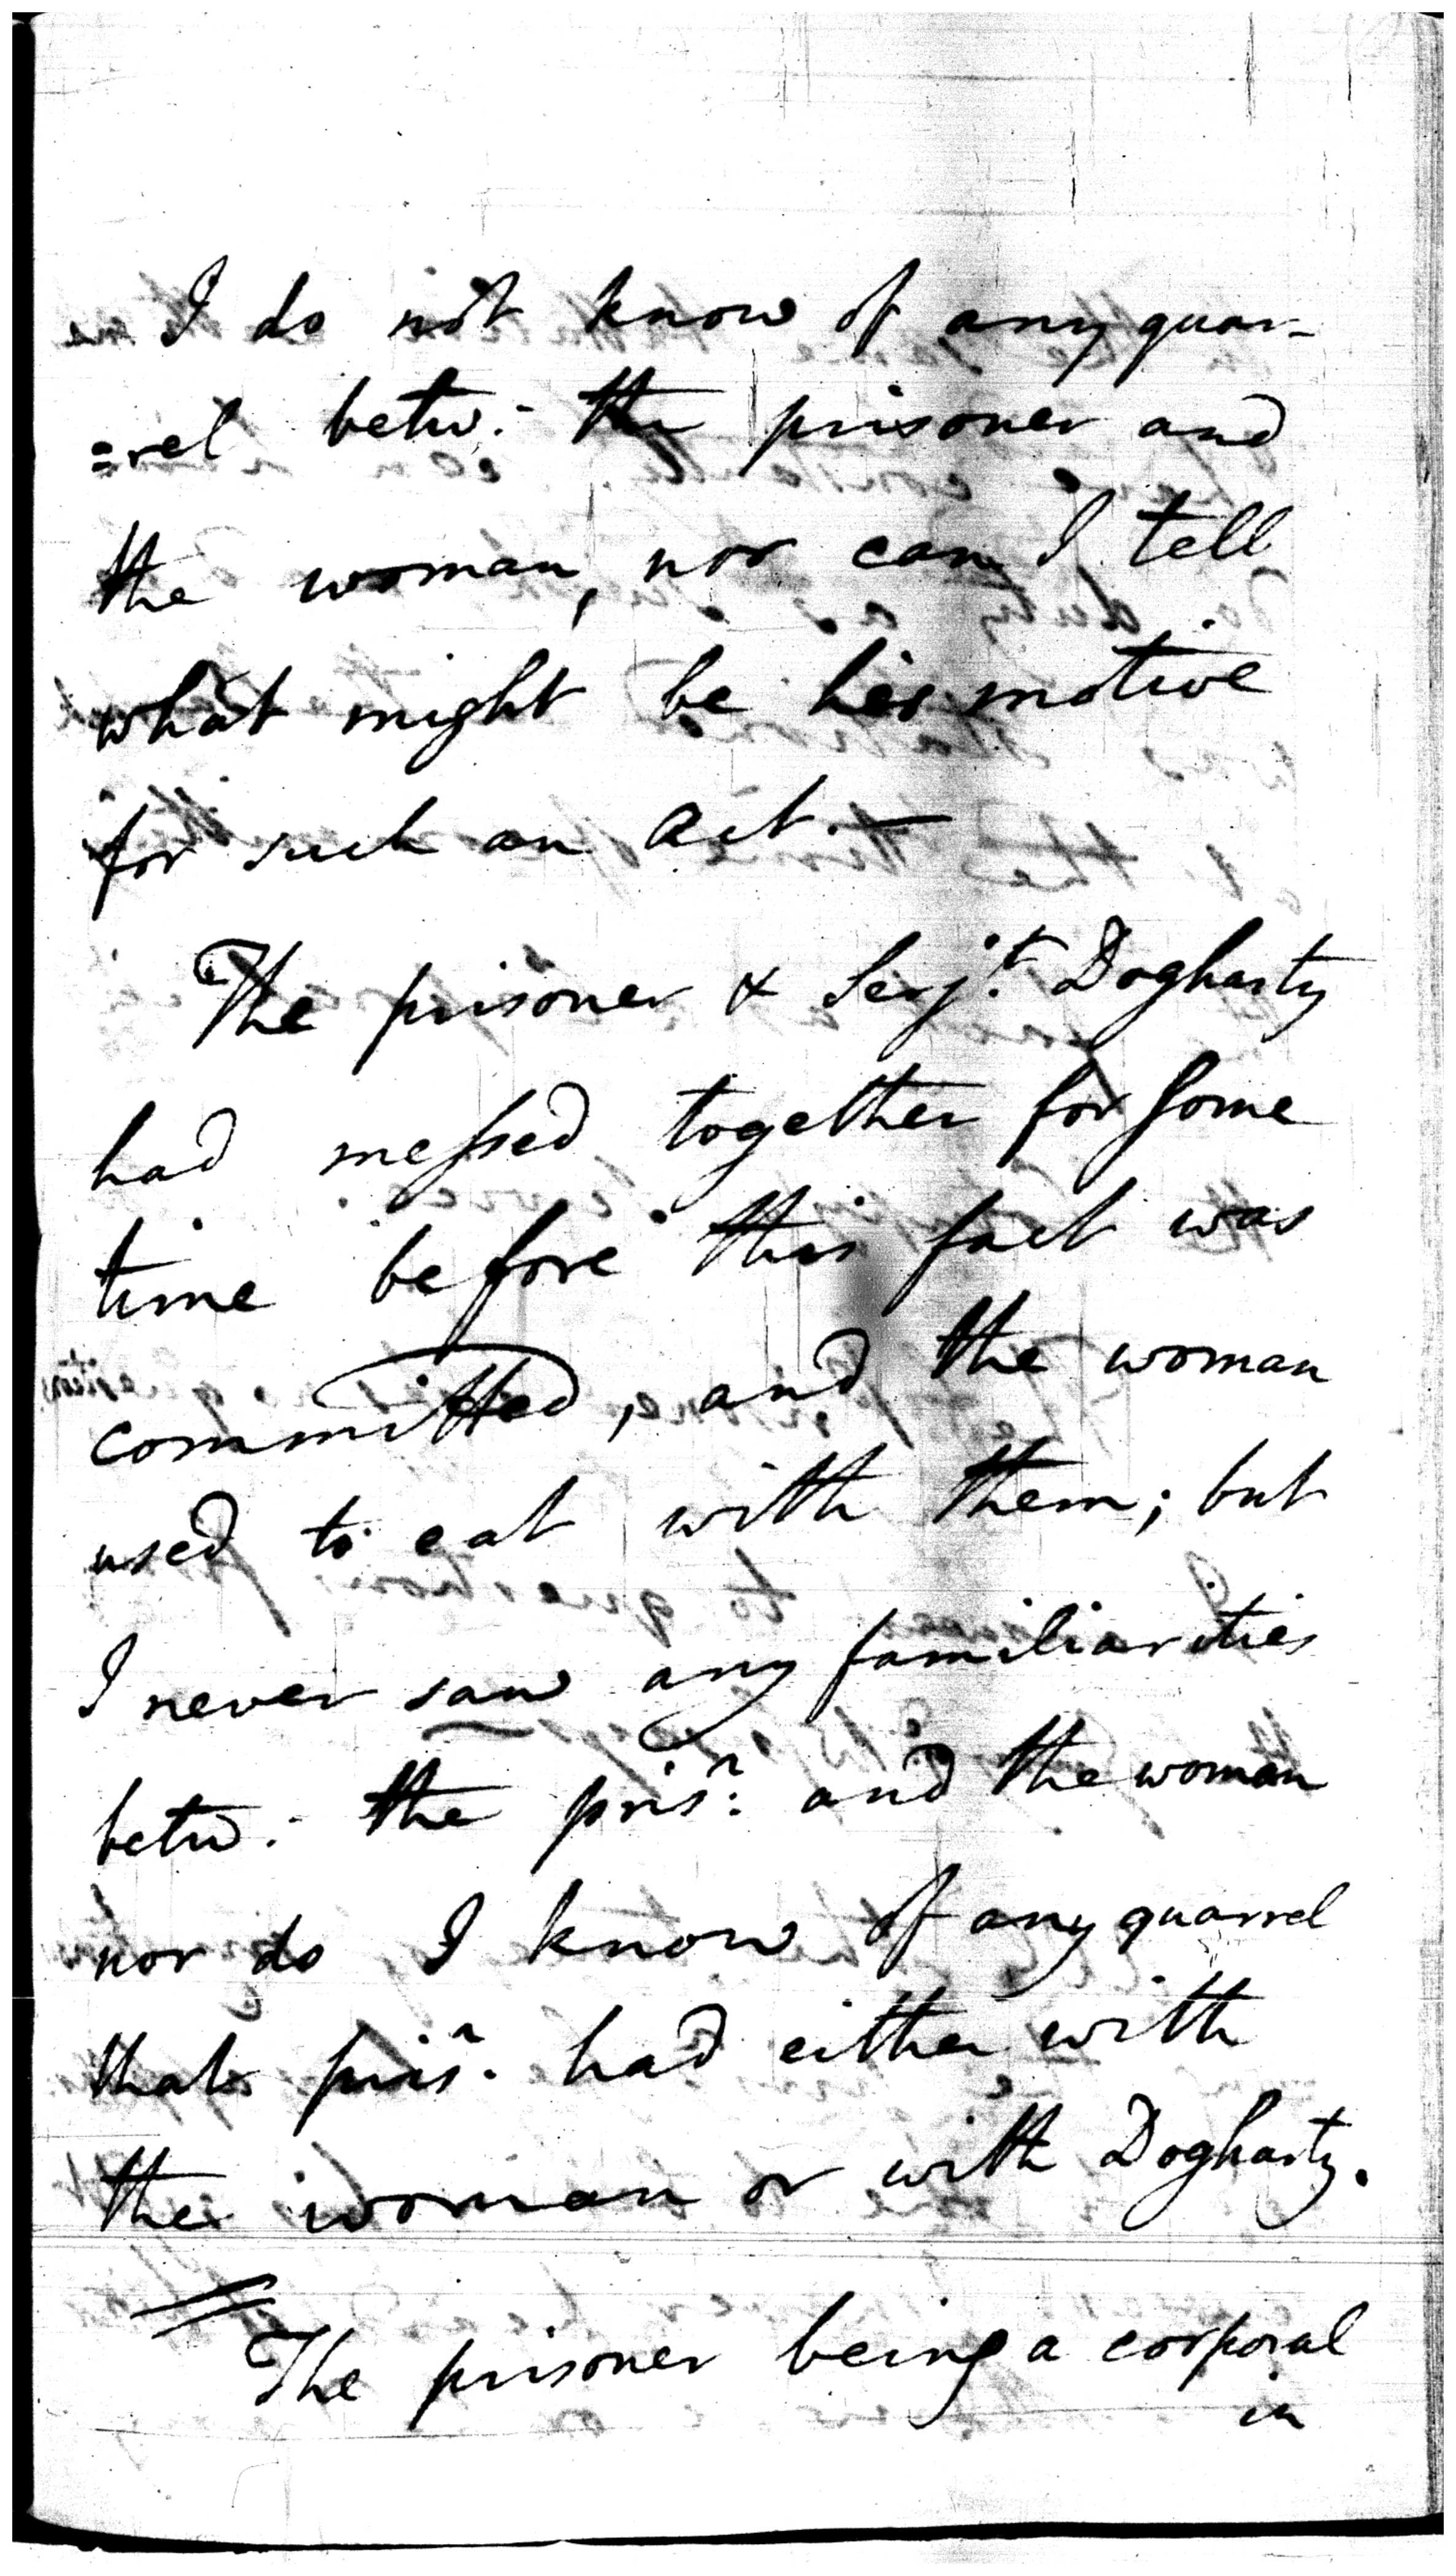 I do not know of any quar-
=rel betw: the prisoner and
the woman, nor can I tell
what might be his motive
for such an act. —
The prisoner & Serjt. Dogharty
had messed together for some
time before this fact was
committed, and the woman
used to eat with them; but
I never saw any familiarities
betw: the prisr. and the woman
nor do I know of any quarrel
that prisr. had either with
the woman or with Dogharty.
The prisoner being a corporal
in